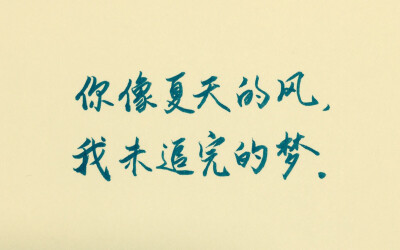 你像夏天的风,
我未追完的梦.